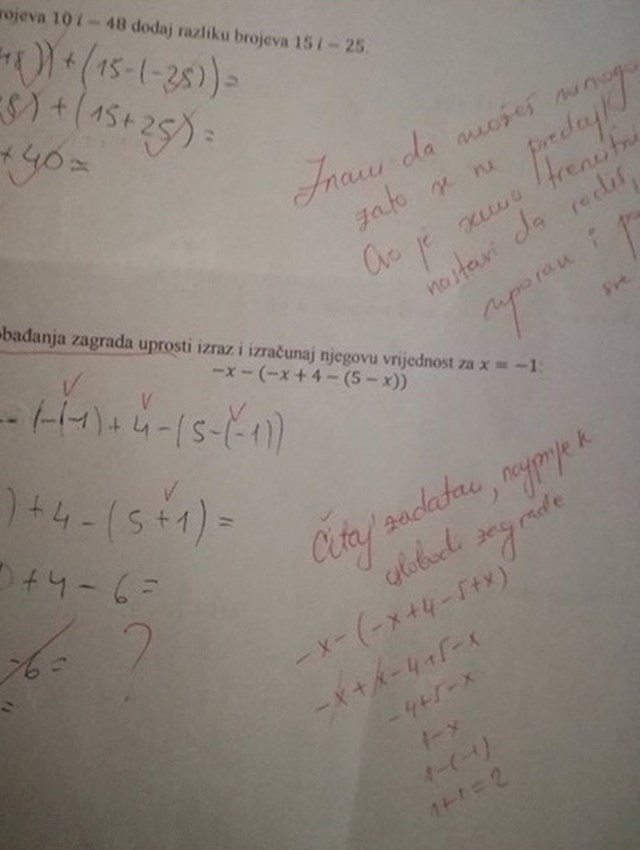 rojeva 10 i – 48 dodaj razliku brojeva 15 i – 25.
48)) + (15-(-25)) =
) + (15+25) =
+ 40 =
Znam da možeš mnogo
zato se ne predaj
Ovo je samo trenutni
nastavi da radiš,
uporan i
sve
obađanja zagrada uprosti izraz i izračunaj njegovu vrijednost za x = –1:
–x – (–x + 4 – (5 – x))
- (-(-1) + 4 - (5-(-1))
) + 4 - (5+1) =
) + 4 - 6 =
-6 = ?
=
Čitaj zadatak, najprije k
oslobodi zagrade
-x-(-x+4-5+x)
-x+x-4+5-x
-4+5-x
1-x
1-(-1)
1+1=2